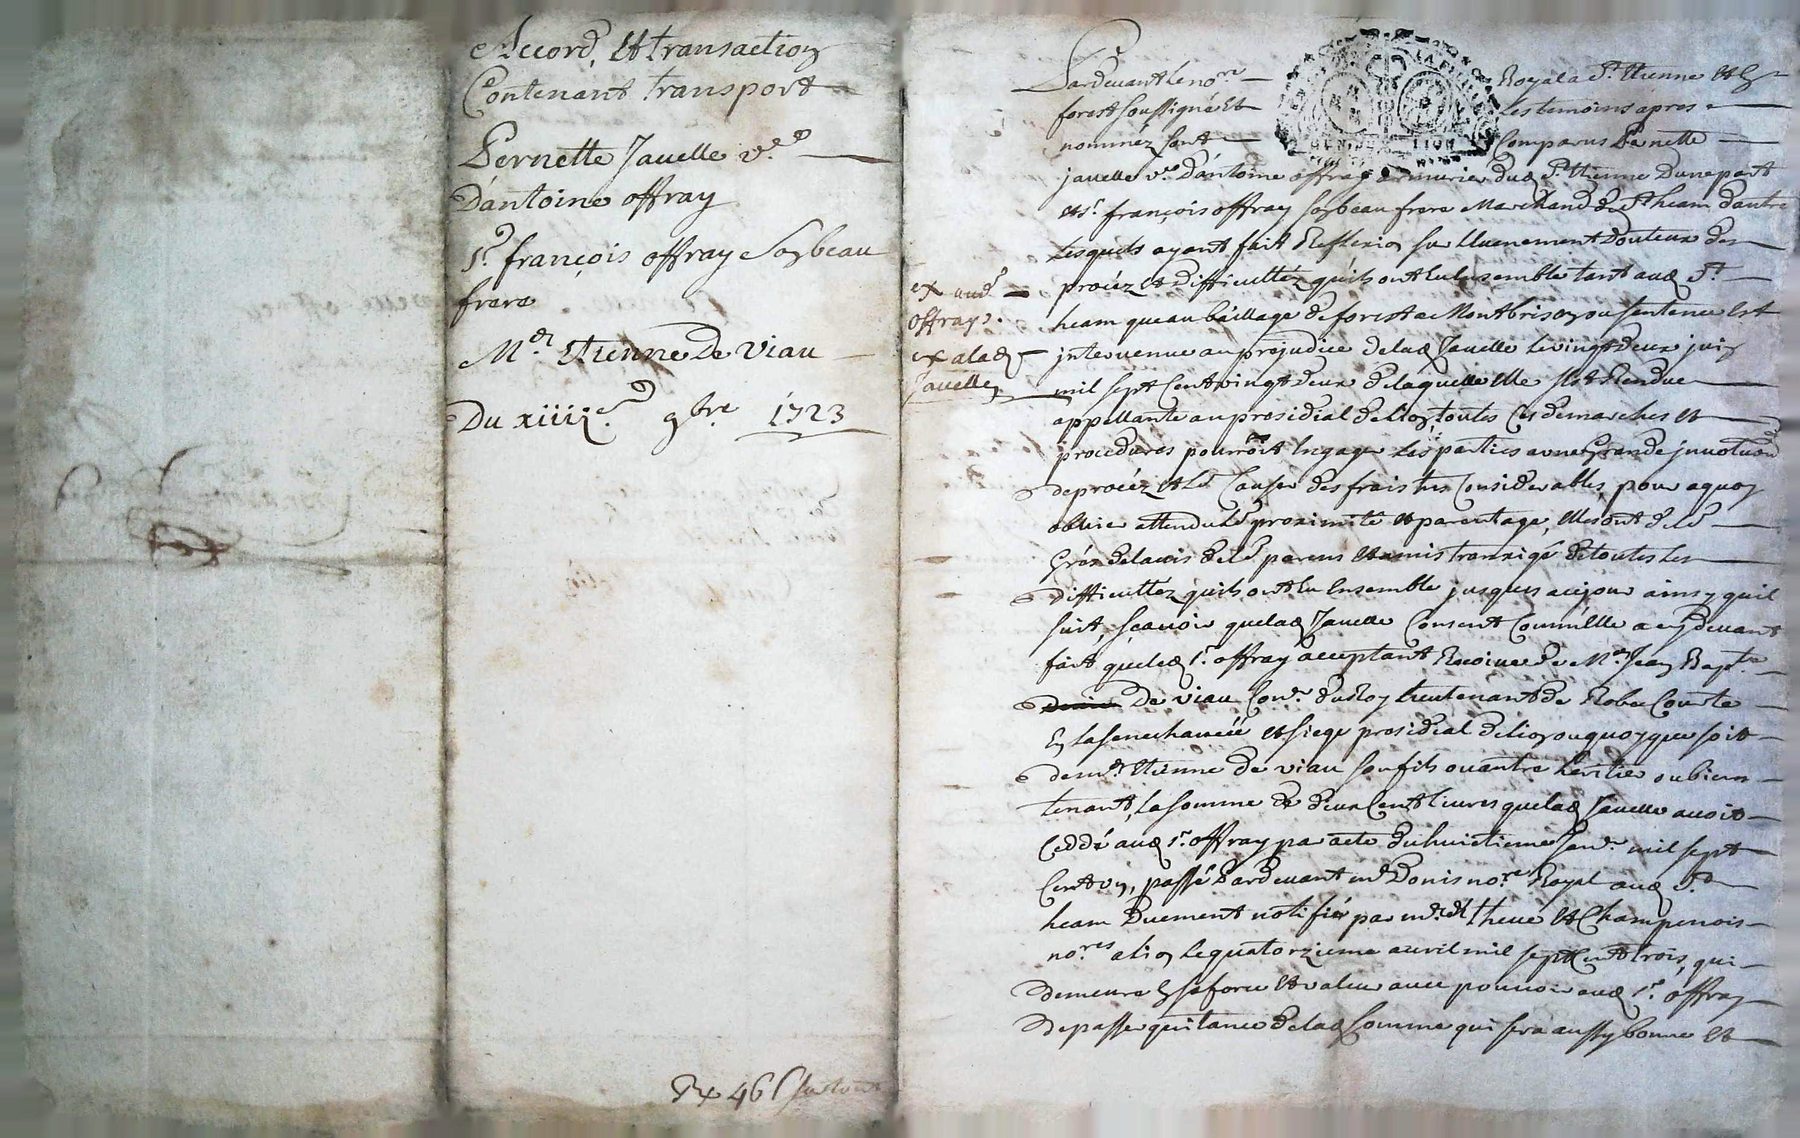 Accord, et transaction
Contenant transport
Pernette Jauelle v.e
D'antoine offray
S.r françois offray Son beau
frere
M.er Etienne De viau
Du xiiii.e 9bre 1723
Pardevant le no.re Royal a S.t Etienne et en
forest soussigné et les temoins apres
nomméz sont comparus Pernette
jauelle v.e D'antoine offray armurier dud S.t Etienne Dune part
et s.r françois offray son beau frere Marchand de S.t heam dautre
Lesquels ayant fait Reflexion sur l'euenement Douteux des
procéz et difficultéz qu'ils ont eu Ensemble tant aud S.t
ex aud
offray.
heam que au bailliage de forest a Montbrison ou sentence Est
ex a lad
Jauelle
jnteruenue au préjudice de lad Jauelle Le vingt deux juin
mil sept Cent vingt deux de laquelle Elle s'est Rendue
appellante au presidial de Lion, toutes Ces demarches et
procedures pourroit Engager Les parties a une Grande
de procéz et Leur Causer des frais tres Considerables, pour a quoy
obuier attendu Leur proximité et parentage, Elles ont de Leur
Gréz de lauis de Leurs parens et amis tranxigé de toutes Les
difficultez qu'ils ont eu Ensemble jusques aujour ainsy quil
suit, scauoir que lad Jauelle Consent Comm'Elle a cy deuant
fait que led s.r offray acceptant Recoiue de M.e Jean Bapt.e
De viau Con.er du Roy Lieutenant de Robe Courte
En la senechaucée et siege presidial de Lion ou quoy que soit
de m.re Etienne de viau son fils ou autre heritier ou bien
tenant, la somme de deux Cent liures que lad Jauelle auoit
Ceddé aud s.r offray par acte du huictieme Jan.er mil sept
Cent un, passé Pardevant m.e Donis no.re Royal aud S.t
heam Duement notifié par m.e theue et Champenois
no.res a Lion le quatorzieme auril mil sept Cent trois, qui
demeure En sa force et valeur auec pouuoir aud s.r offray
de passer quitance de lad somme qui sera aussy bonne et